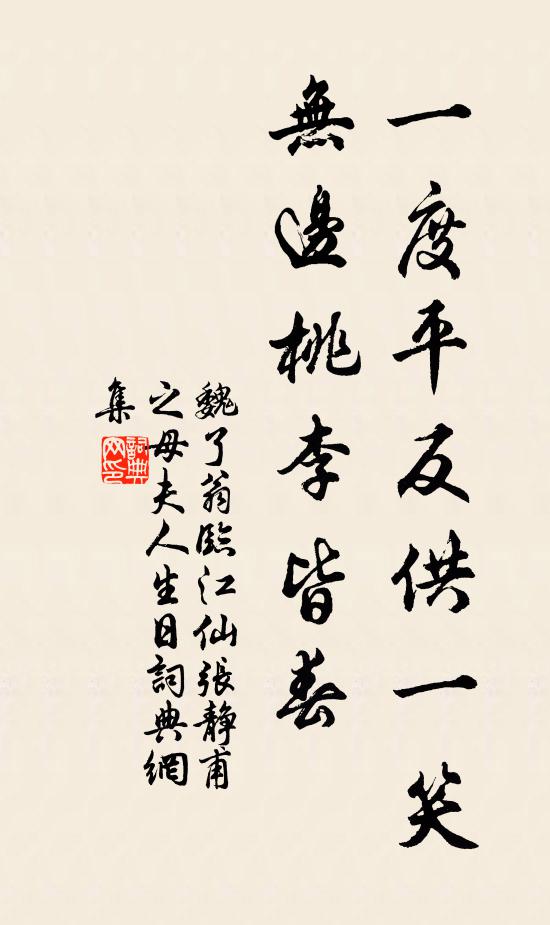 一度平反供一笑
無邊桃李皆春
魏了翁臨江仙張静甫
之母夫人生日詞典網
集
詞典
网印